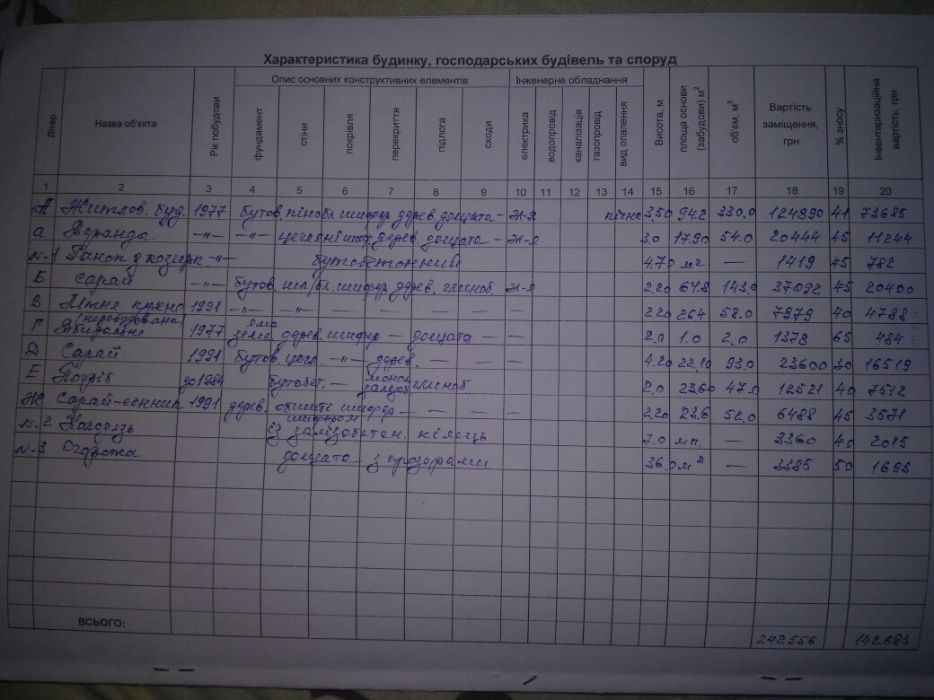 Характеристика будинку, господарських будівель та споруд
Літер Назва об'єкта Рік побудови Опис основних конструктивних елементів Інженерне обладнання Висота, м площа основи (забудови) м² об'єм, м³ Вартість заміщення, грн % зносу Інвентаризаційна вартість, грн
фундамент стіни покрівля перекриття підлога сходи електрика водопровід каналізація газопровід вид опалення
1 2 3 4 5 6 7 8 9 10 11 12 13 14 15 16 17 18 19 20
А Житлов. буд. 1977 бутов. шифер дерев дощата – пічне 3,50 94.2 330.0 124990 41 73685
а Веранда –"– –"– дерев дощата – 3.0 17.90 54.0 20444 45 11244
№1 Ганок з козирк. –"– бутобетонний 4.70 м² — 1419 45 782
Б сарай –"– бутов. шифер дерев. 2,20 143,0 37092 45 20400
В Літня кухня 1991 – – – – – – – 2,20 264 58.0 7979 40 4788
(перебудована)
Г Вбиральня 1977 яма дерев шифер – дощата – – 2.0 1.0 2.0 1378 65 484
Д Сарай 1991 бутов. цегл. –"– дерев. – – – 4.20 22,10 93,0 23600 30 16519
Е Погріб до 1984 бутобет. – – – 2,0 23,60 47.0 12521 40 7512
Ж Сарай-сінник 1991 дерев. шифер – – – – 2,20 23,6 52,0 6488 45 3571
шифером
№2 Колодязь із залізобетон. кілець 7.0 мп. — 3360 40 2015
№3 Огорожа дощата з прозорами 36,0 м² — 3385 50 1693
ВСЬОГО: 242556 142693